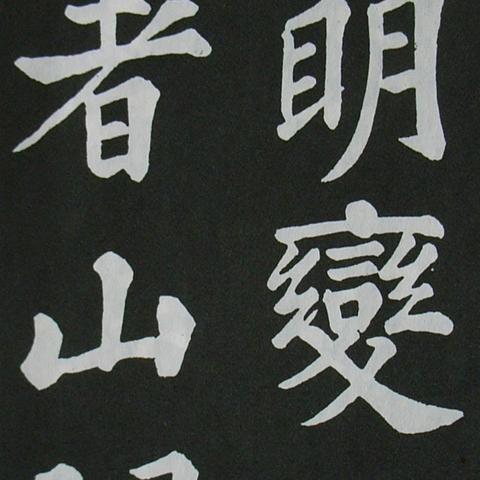 明變
者山